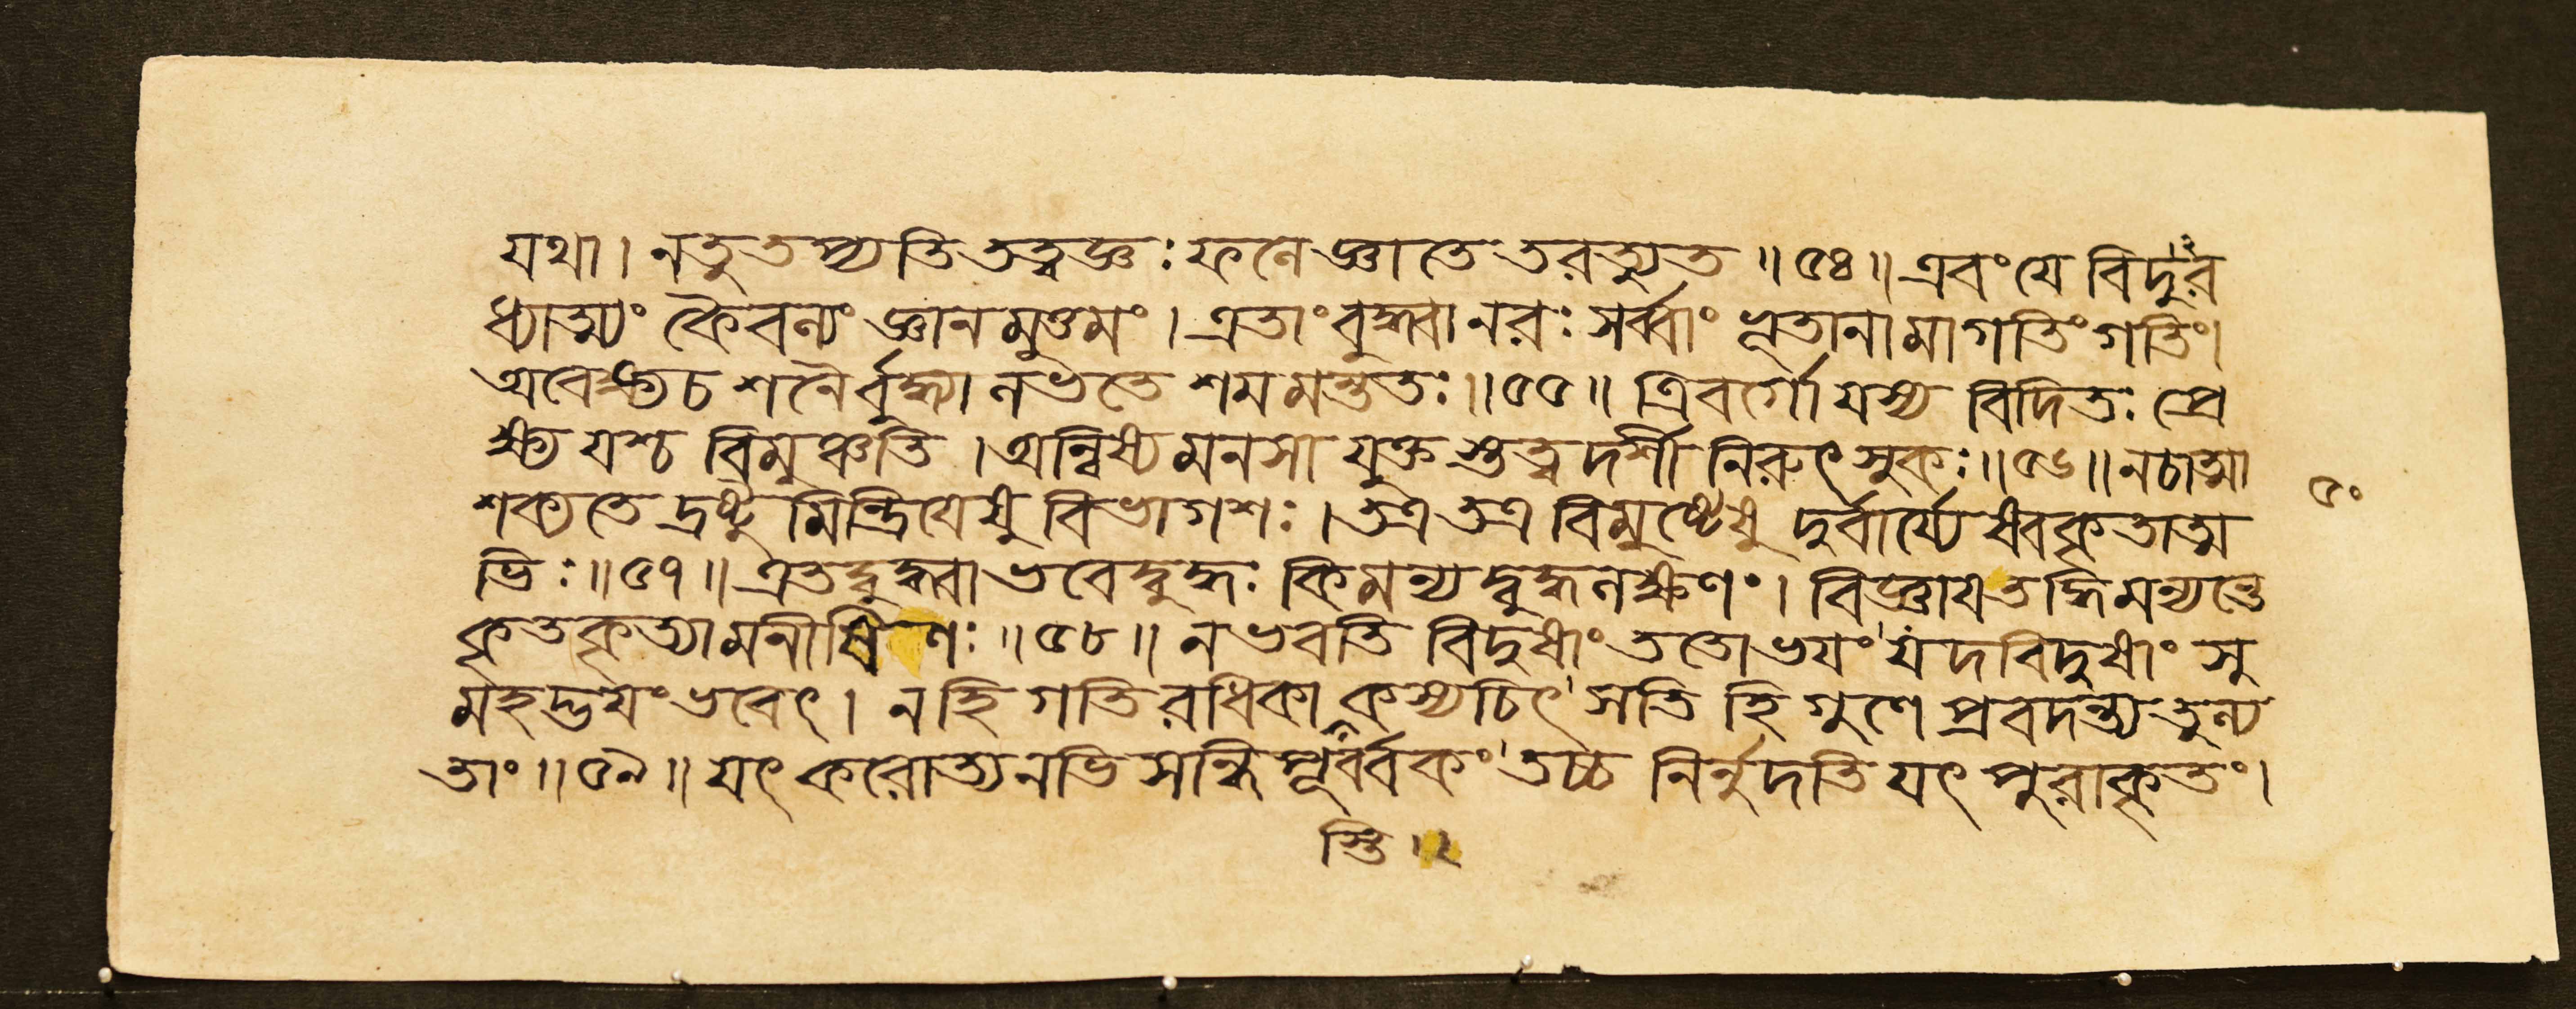 যথা। নতু তপ্যতি তত্ত্বজ্ঞঃ ফলে জ্ঞাতে তরত্যুত ॥৫৪॥ এবং যে বিদুর
ধ্যাত্মং কৈবল্যং জ্ঞানমুত্তমং। এতাং বুদ্ধ্বা নরঃ সর্ব্বাং ভূতানামাগতিং গতিং।
অবেক্ষ্য চ শনৈর্বুদ্ধ্যা লভতে শমমন্ততঃ॥৫৫॥ ত্রিবর্গো যস্য বিদিতঃ প্রে
ক্ষ্য যশ্চ বিমুঞ্চতি। অন্বিষ্য মনসা যুক্তস্তত্ত্বদর্শী নিরুৎসুকঃ॥৫৬॥ নচাত্মা
শক্যতে দ্রষ্টুমিন্দ্রিযেষু বিভাগশঃ। তত্র তত্র বিসৃষ্টেষু দুর্বার্য্যেষ্বকৃতাত্ম
ভিঃ॥৫৭॥ এতদ্বুদ্ধ্বা ভবেদ্বুদ্ধঃ কিমন্যদ্বুদ্ধলক্ষণং। বিজ্ঞায তদ্ধি মন্যন্তে
কৃতকৃত্যা মনীষিণঃ॥৫৮॥ ন ভবতি বিদুষাং ততো ভযং যদবিদুষাং সু
মহদ্ভযং ভবেৎ। নহি গতিরধিকা কস্যচিৎ সতি হি গুণে প্রবদন্ত্যতুল্য
তাং॥৫৯॥ যৎ করোত্যনভিসন্ধিপূর্ব্বকং তচ্চ নির্নুদতি যৎ পুরাকৃতং।
৫০
স্তি ॥২